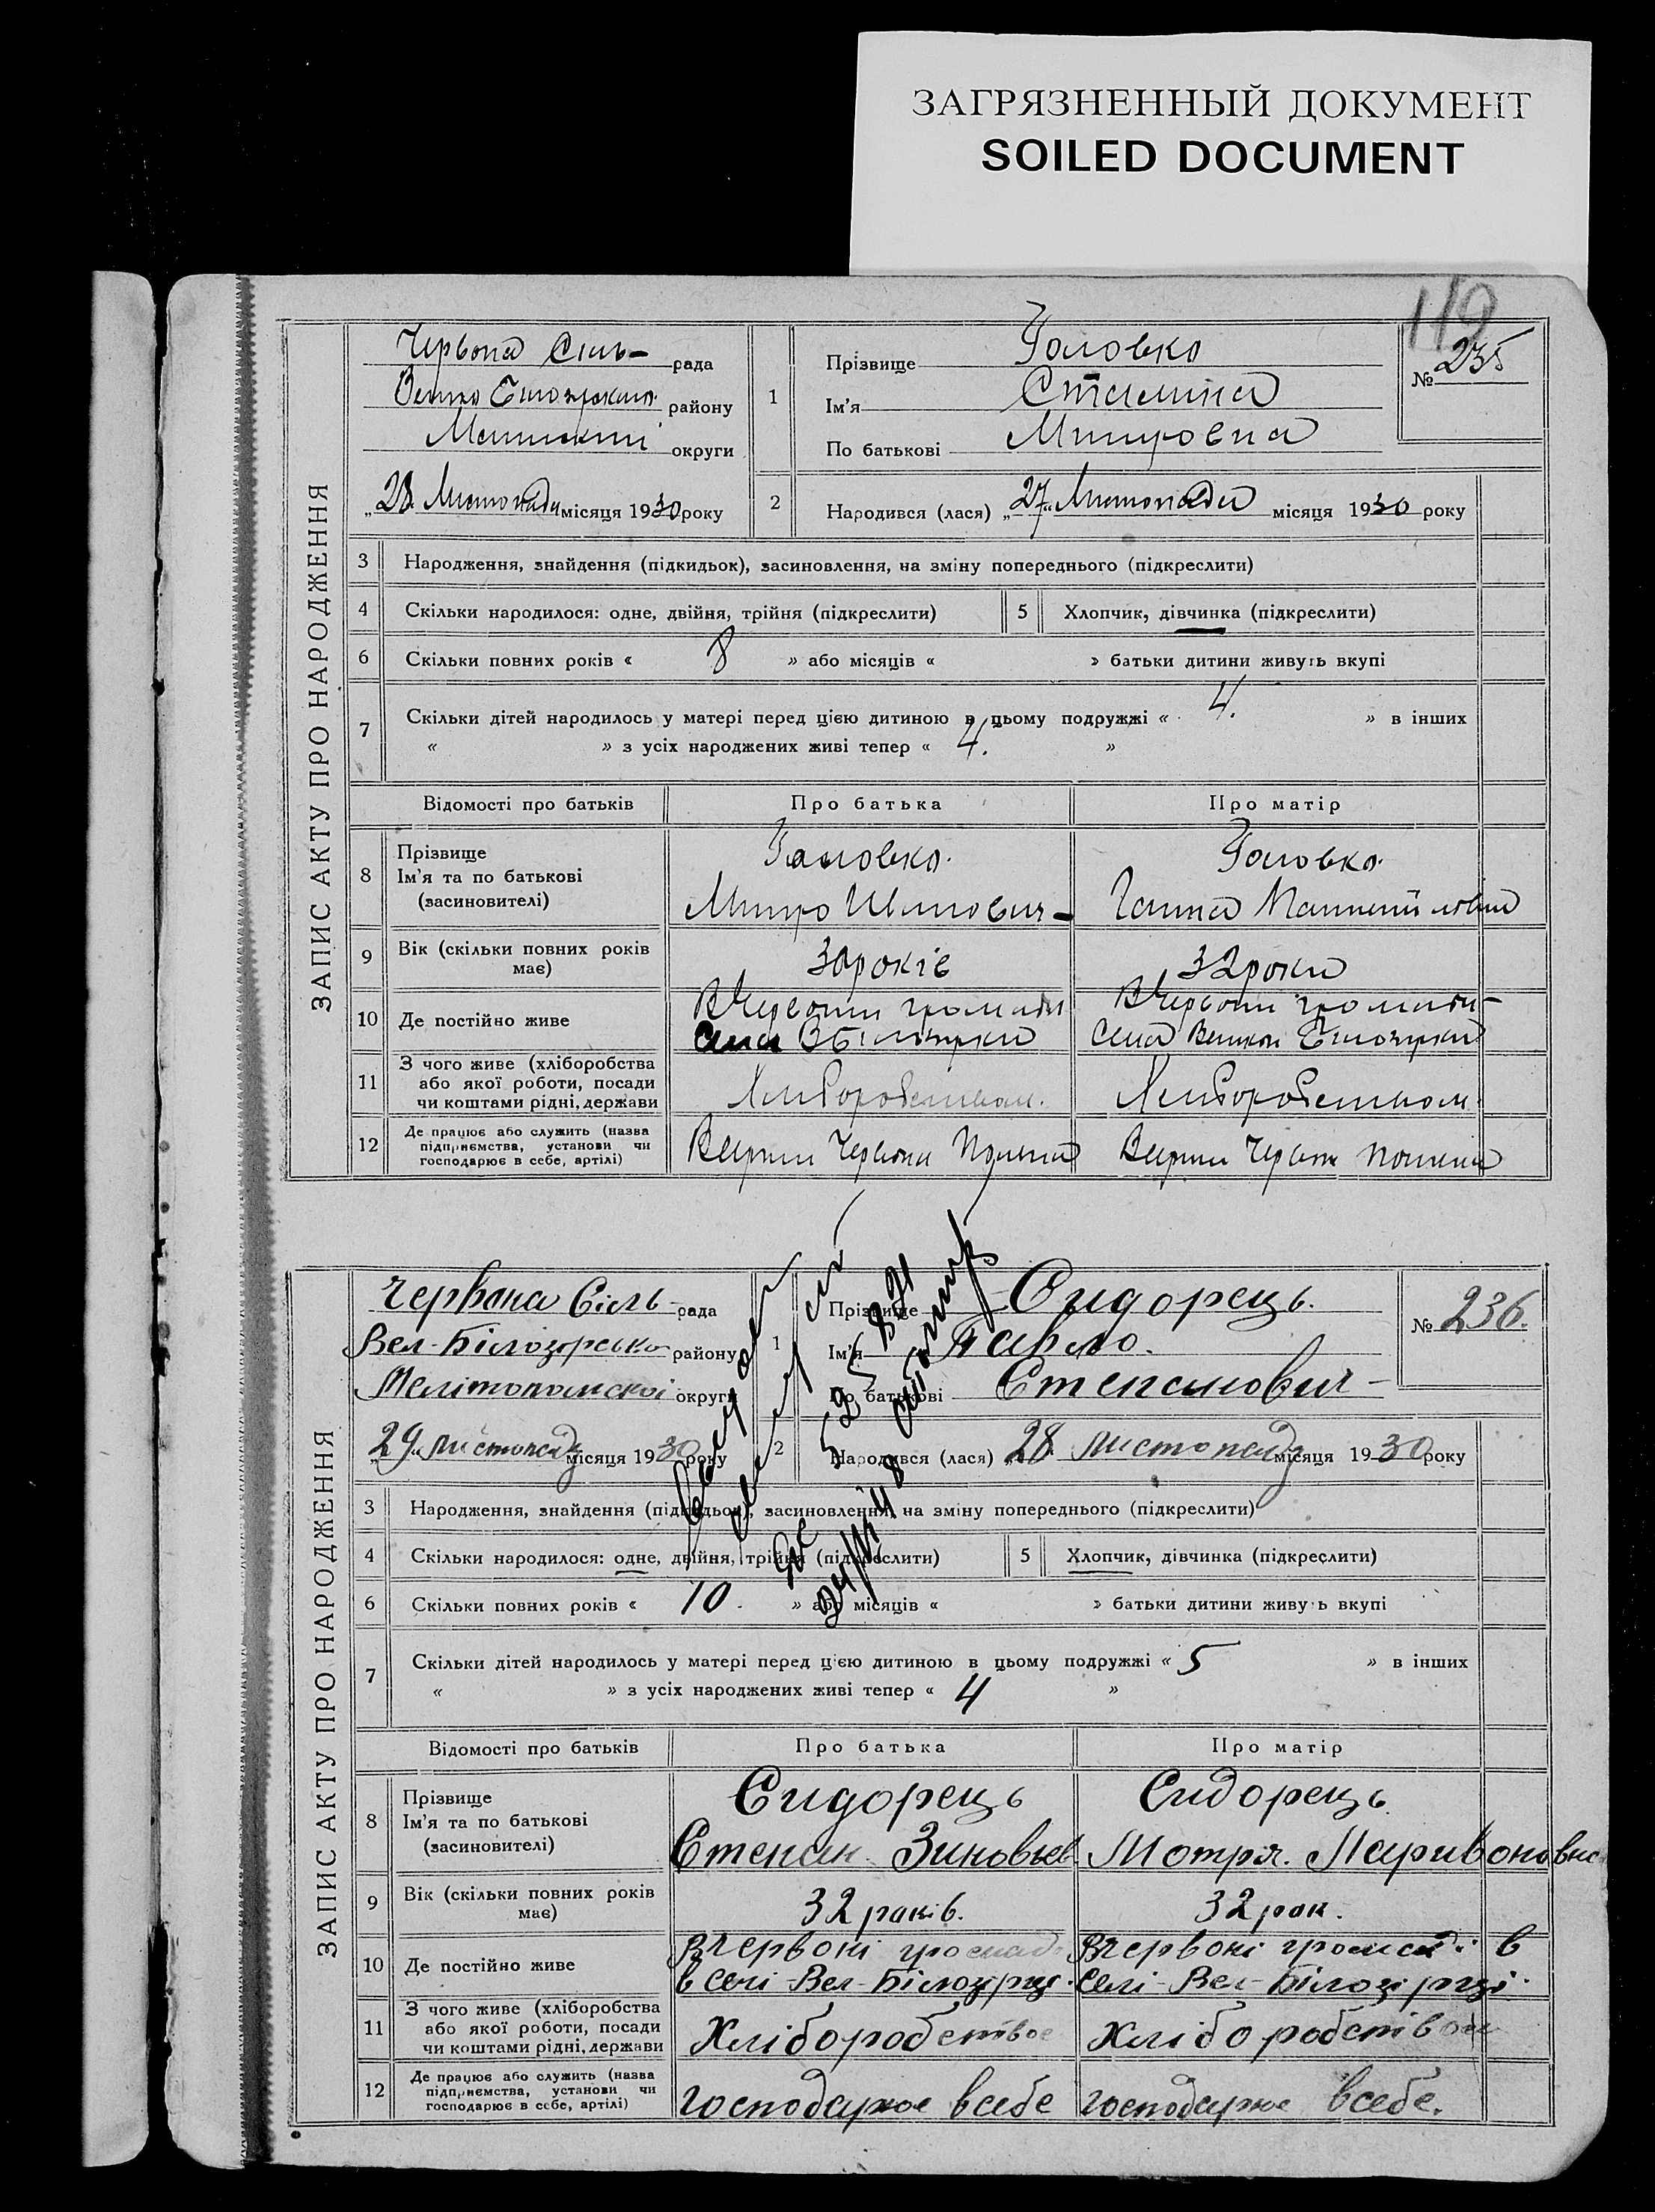 ЗАГРЯЗНЕННЫЙ ДОКУМЕНТ
SOILED DOCUMENT
119
ЗАПИС АКТУ ПРО НАРОДЖЕННЯ
Червона Сіль- рада
району
округи
„28. Листопада місяця 1930 року
1
Прізвище Головко
Ім'я Сталина
По батькові Митровна
№ 235
2 Народився (лася) „27„ Листопада місяця 1930 року
3 Народження, знайдення (підкидьок), засиновлення, на зміну попереднього (підкреслити)
4 Скільки народилося: одне, двійня, трійня (підкреслити) 5 Хлопчик, дівчинка (підкреслити)
6 Скільки повних років « 8 » або місяців « » батьки дитини живуть вкупі
7 Скільки дітей народилось у матері перед цією дитиною в цьому подружжі « 4. » в інших
« » з усіх народжених живі тепер « 4. »
Відомості про батьків Про батька Про матір
8 Прізвище
Ім'я та по батькові
(засиновителі)
Головко.
Митро
Головко.
Ганна
9 Вік (скільки повних років
має)
30 років
32 роки
10 Де постійно живе
В Червоній громади
Села В Білозірки
В Червоній громади-
Села Великої Білозірки
11 З чого живе (хліборобства
або якої роботи, посади
чи коштами рідні, держави
Хліборобством.
Хліборобством.
12 Де працює або служить (назва
підприємства, установи чи
господарює в себе, артілі)
ЗАПИС АКТУ ПРО НАРОДЖЕННЯ
Червона Сіль- рада
Вел-Білозорсько району
Мелітопольскої округи
„29„ листопаду місяця 1930 року
1
Прізвище Сидорець.
Ім'я Павло.
По батькові Степанович-
№ 236.
2 Народився (лася) „28 листопаду місяця 1930 року
3 Народження, знайдення (підкидьок), засиновлення, на зміну попереднього (підкреслити)
4 Скільки народилося: одне, двійня, трійня (підкреслити) 5 Хлопчик, дівчинка (підкреслити)
6 Скільки повних років « 10. » або місяців « » батьки дитини живуть вкупі
7 Скільки дітей народилось у матері перед цією дитиною в цьому подружжі « 5 » в інших
« » з усіх народжених живі тепер « 4 »
Відомості про батьків Про батька Про матір
8 Прізвище
Ім'я та по батькові
(засиновителі)
Сидорець
Степан Зиновьев
Сидорець
Мотря. Ларивоновна
9 Вік (скільки повних років
має)
32 років.
32 рок.
10 Де постійно живе
Вчервоні громаді
в селі-Вел-Білозірці.
Вчервоні громаді в
селі-Вел-Білозірці.
11 З чого живе (хліборобства
або якої роботи, посади
чи коштами рідні, держави
Хліборобством
Хліборобством
12 Де працює або служить (назва
підприємства, установи чи
господарює в себе, артілі)
господарює всебе
господарює всебе.